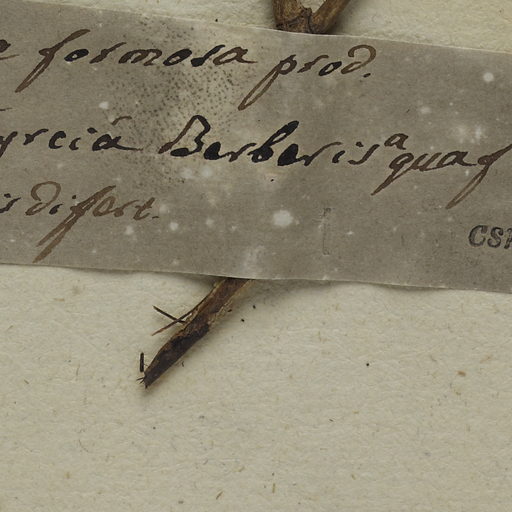 a formosa prod.
yrcia Berberis a quaf
is difert.
CSI